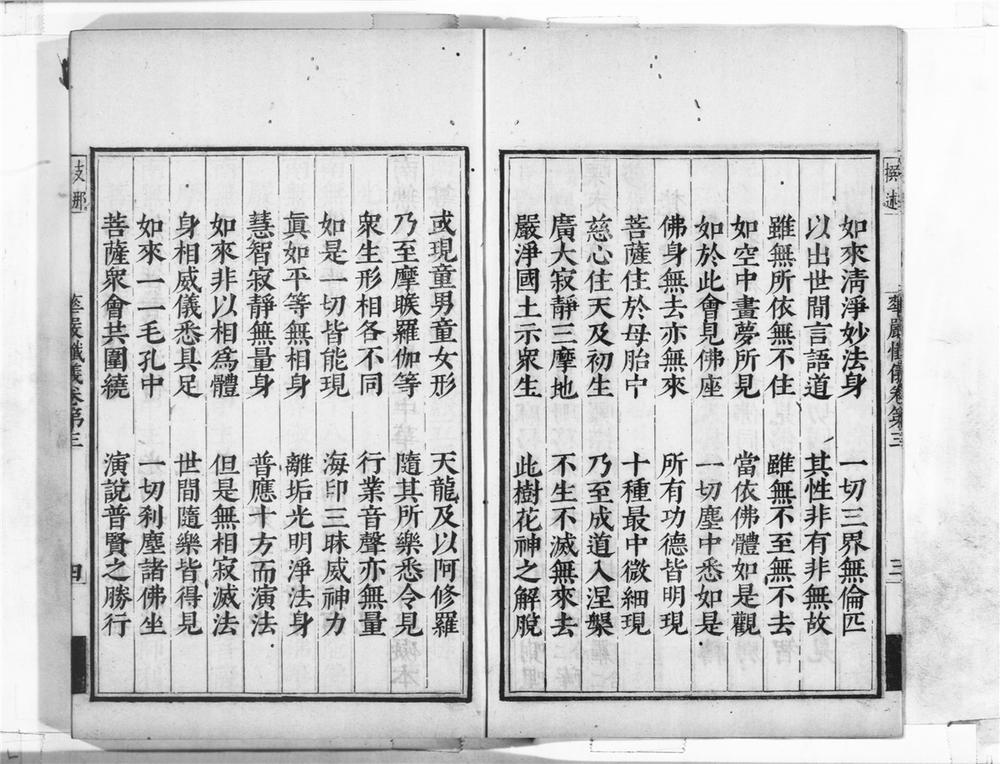 如來清淨妙法身　一切三界無倫匹
以出世間言語道　其性非有非無故
雖無所依無不住　雖無不至無不去
如空中畫夢所見　當依佛體如是觀
如於此會見佛座　一切塵中悉如是
佛身無去亦無來　所有功德皆明現
菩薩住於母胎中　十種最中微細現
慈心住天及初生　乃至成道入涅槃
廣大寂靜三摩地　不生不滅無來去
嚴淨國土示衆生　此樹花神之解脫
華嚴懺儀卷第三
三
或現童男童女形　天龍及以阿修羅
乃至摩睺羅伽等　隨其所樂悉令見
衆生形相各不同　行業音聲亦無量
如是一切皆能現　海印三昧威神力
眞如平等無相身　離垢光明淨法身
慧智寂靜無量身　普應十方而演法
如來非以相爲體　但是無相寂滅法
身相威儀悉具足　世間隨樂皆得見
如來一一毛孔中　一切刹塵諸佛坐
菩薩衆會共圍繞　演說普賢之勝行
華嚴懺儀卷第三
四